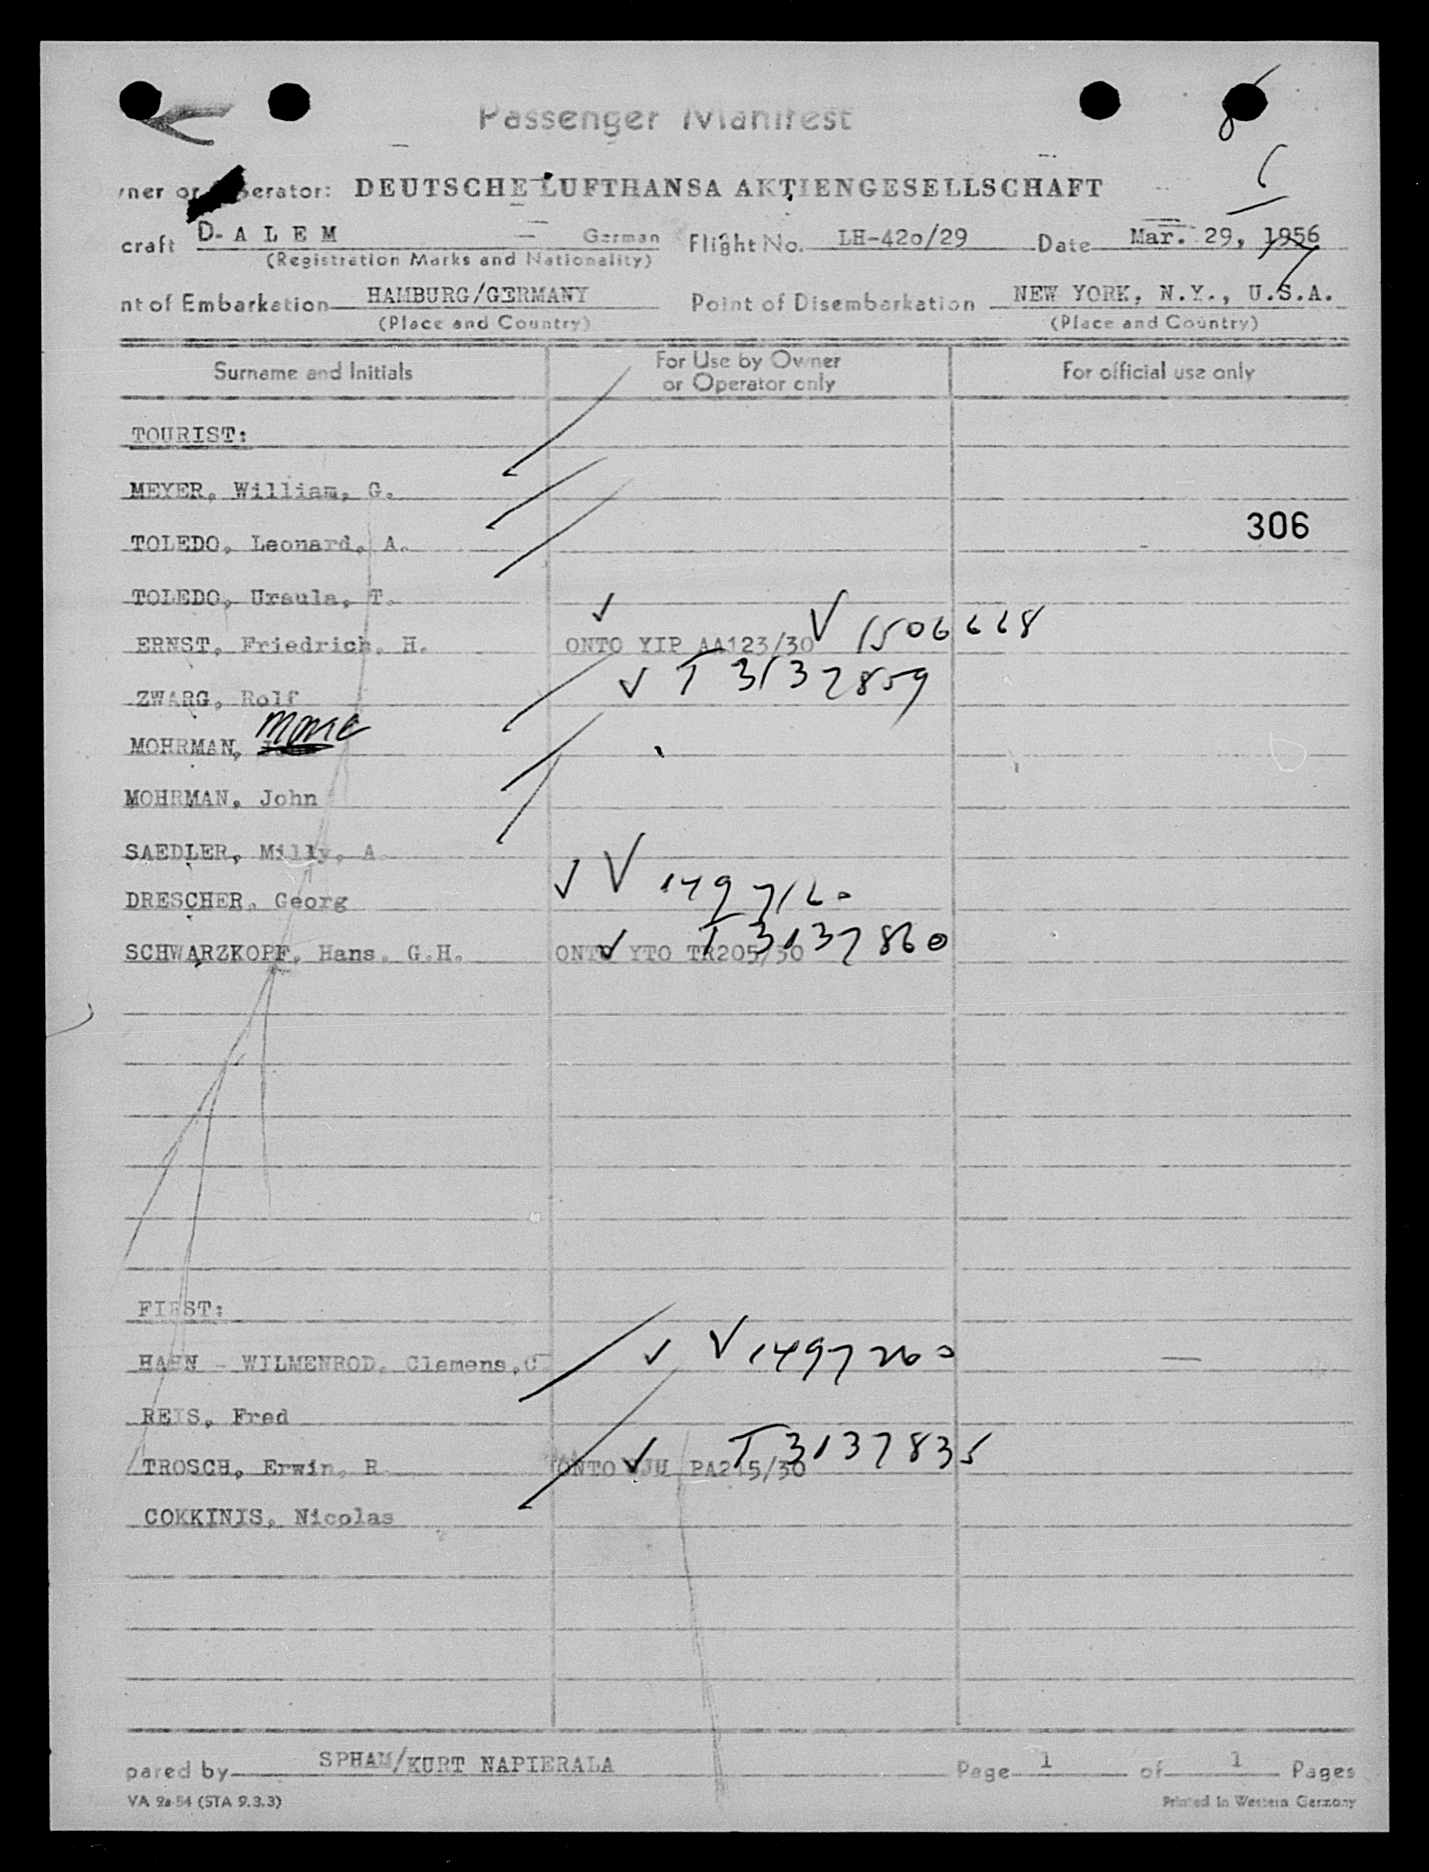 Passenger Manifest
8
6
wner or Operator: DEUTSCHE LUFTHANSA AKTIENGESELLSCHAFT
craft D-ALEM German Flight No. LH-42o/29 Date Mar. 29, 1956
(Registration Marks and Nationality)
nt of Embarkation HAMBURG/GERMANY Point of Disembarkation NEW YORK, N.Y., U.S.A.
(Place and Country) (Place and Country)
Surname and Initials For Use by Owner or Operator only For official use only
TOURIST:
MEYER, William, G.
306
TOLEDO, Leonard, A.
TOLEDO, Ursula, T.
ERNST, Friedrich, H. ONTO YIP AA123/30 V 1506668
ZWARG, Rolf T 3137859
MOHRMAN,
MOHRMAN, John
SAEDLER, Milly, A
DRESCHER, Georg V 1497160
SCHWARZKOPF, Hans, G.H. ONTO YTO TR205/30 T 3137860
FIRST:
HAHN - WILMENROD, Clemens, C V 1497200
REIS, Fred
TROSCH, Erwin, R ONTO PA215/30 T 3137835
COKKINIS, Nicolas
pared by SPHAM/KURT NAPIERALA Page 1 of 1 Pages
VA 9a-54 (STA 9.3.3) Printed in Western Germany